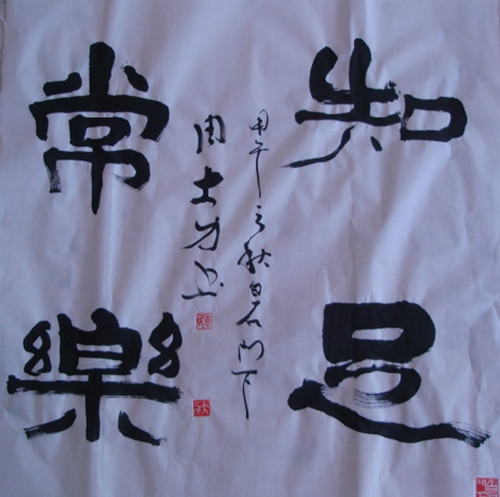 知足
常樂
甲午之秋日石門下
周士方书